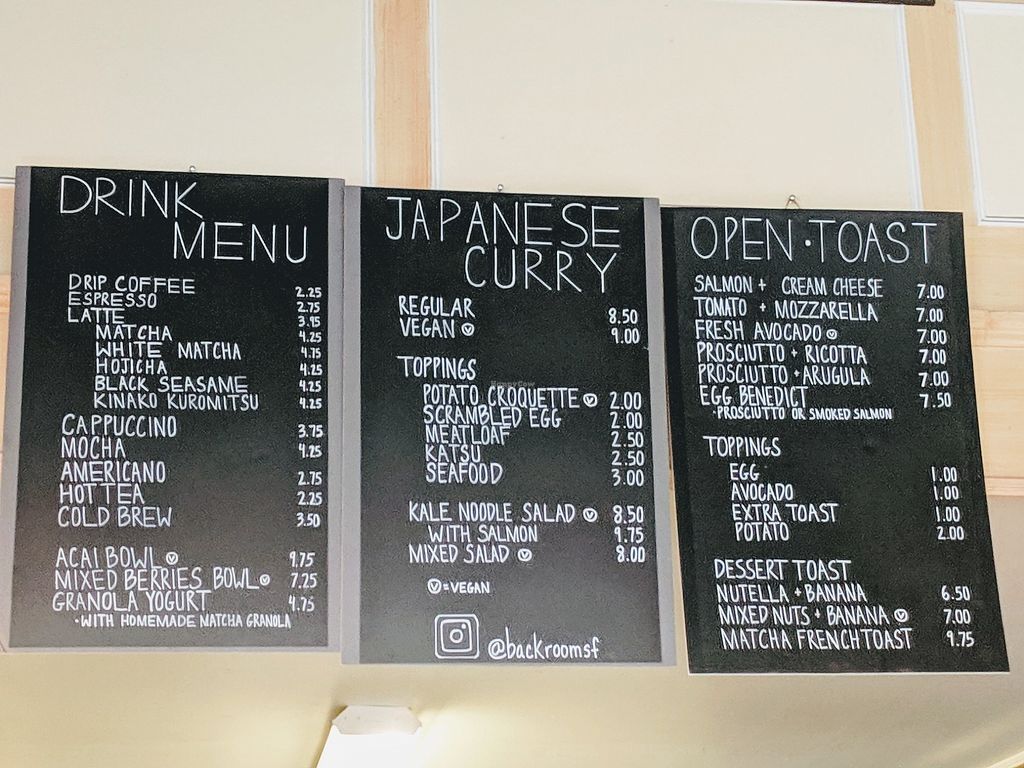 DRINK
MENU
DRIP COFFEE 2.25
ESPRESSO 2.75
LATTE 3.95
MATCHA 4.25
WHITE MATCHA 4.75
HOJICHA 4.25
BLACK SEASAME 4.25
KINAKO KUROMITSU 4.25
CAPPUCCINO 3.75
MOCHA 4.25
AMERICANO 2.75
HOT TEA 2.25
COLD BREW 3.50
ACAI BOWL Ⓥ 9.75
MIXED BERRIES BOWL Ⓥ 7.25
GRANOLA YOGURT 4.75
• WITH HOMEMADE MATCHA GRANOLA
JAPANESE
CURRY
REGULAR 8.50
VEGAN Ⓥ 9.00
TOPPINGS
POTATO CROQUETTE Ⓥ 2.00
SCRAMBLED EGG 2.00
MEATLOAF 2.50
KATSU 2.50
SEAFOOD 3.00
KALE NOODLE SALAD Ⓥ 8.50
WITH SALMON 9.75
MIXED SALAD Ⓥ 8.00
Ⓥ = VEGAN
@backroomsf
OPEN • TOAST
SALMON + CREAM CHEESE 7.00
TOMATO + MOZZARELLA 7.00
FRESH AVOCADO Ⓥ 7.00
PROSCIUTTO + RICOTTA 7.00
PROSCIUTTO + ARUGULA 7.00
EGG BENEDICT 7.50
• PROSCIUTTO OR SMOKED SALMON
TOPPINGS
EGG 1.00
AVOCADO 1.00
EXTRA TOAST 1.00
POTATO 2.00
DESSERT TOAST
NUTELLA + BANANA 6.50
MIXED NUTS + BANANA Ⓥ 7.00
MATCHA FRENCH TOAST 9.75
HappyCow